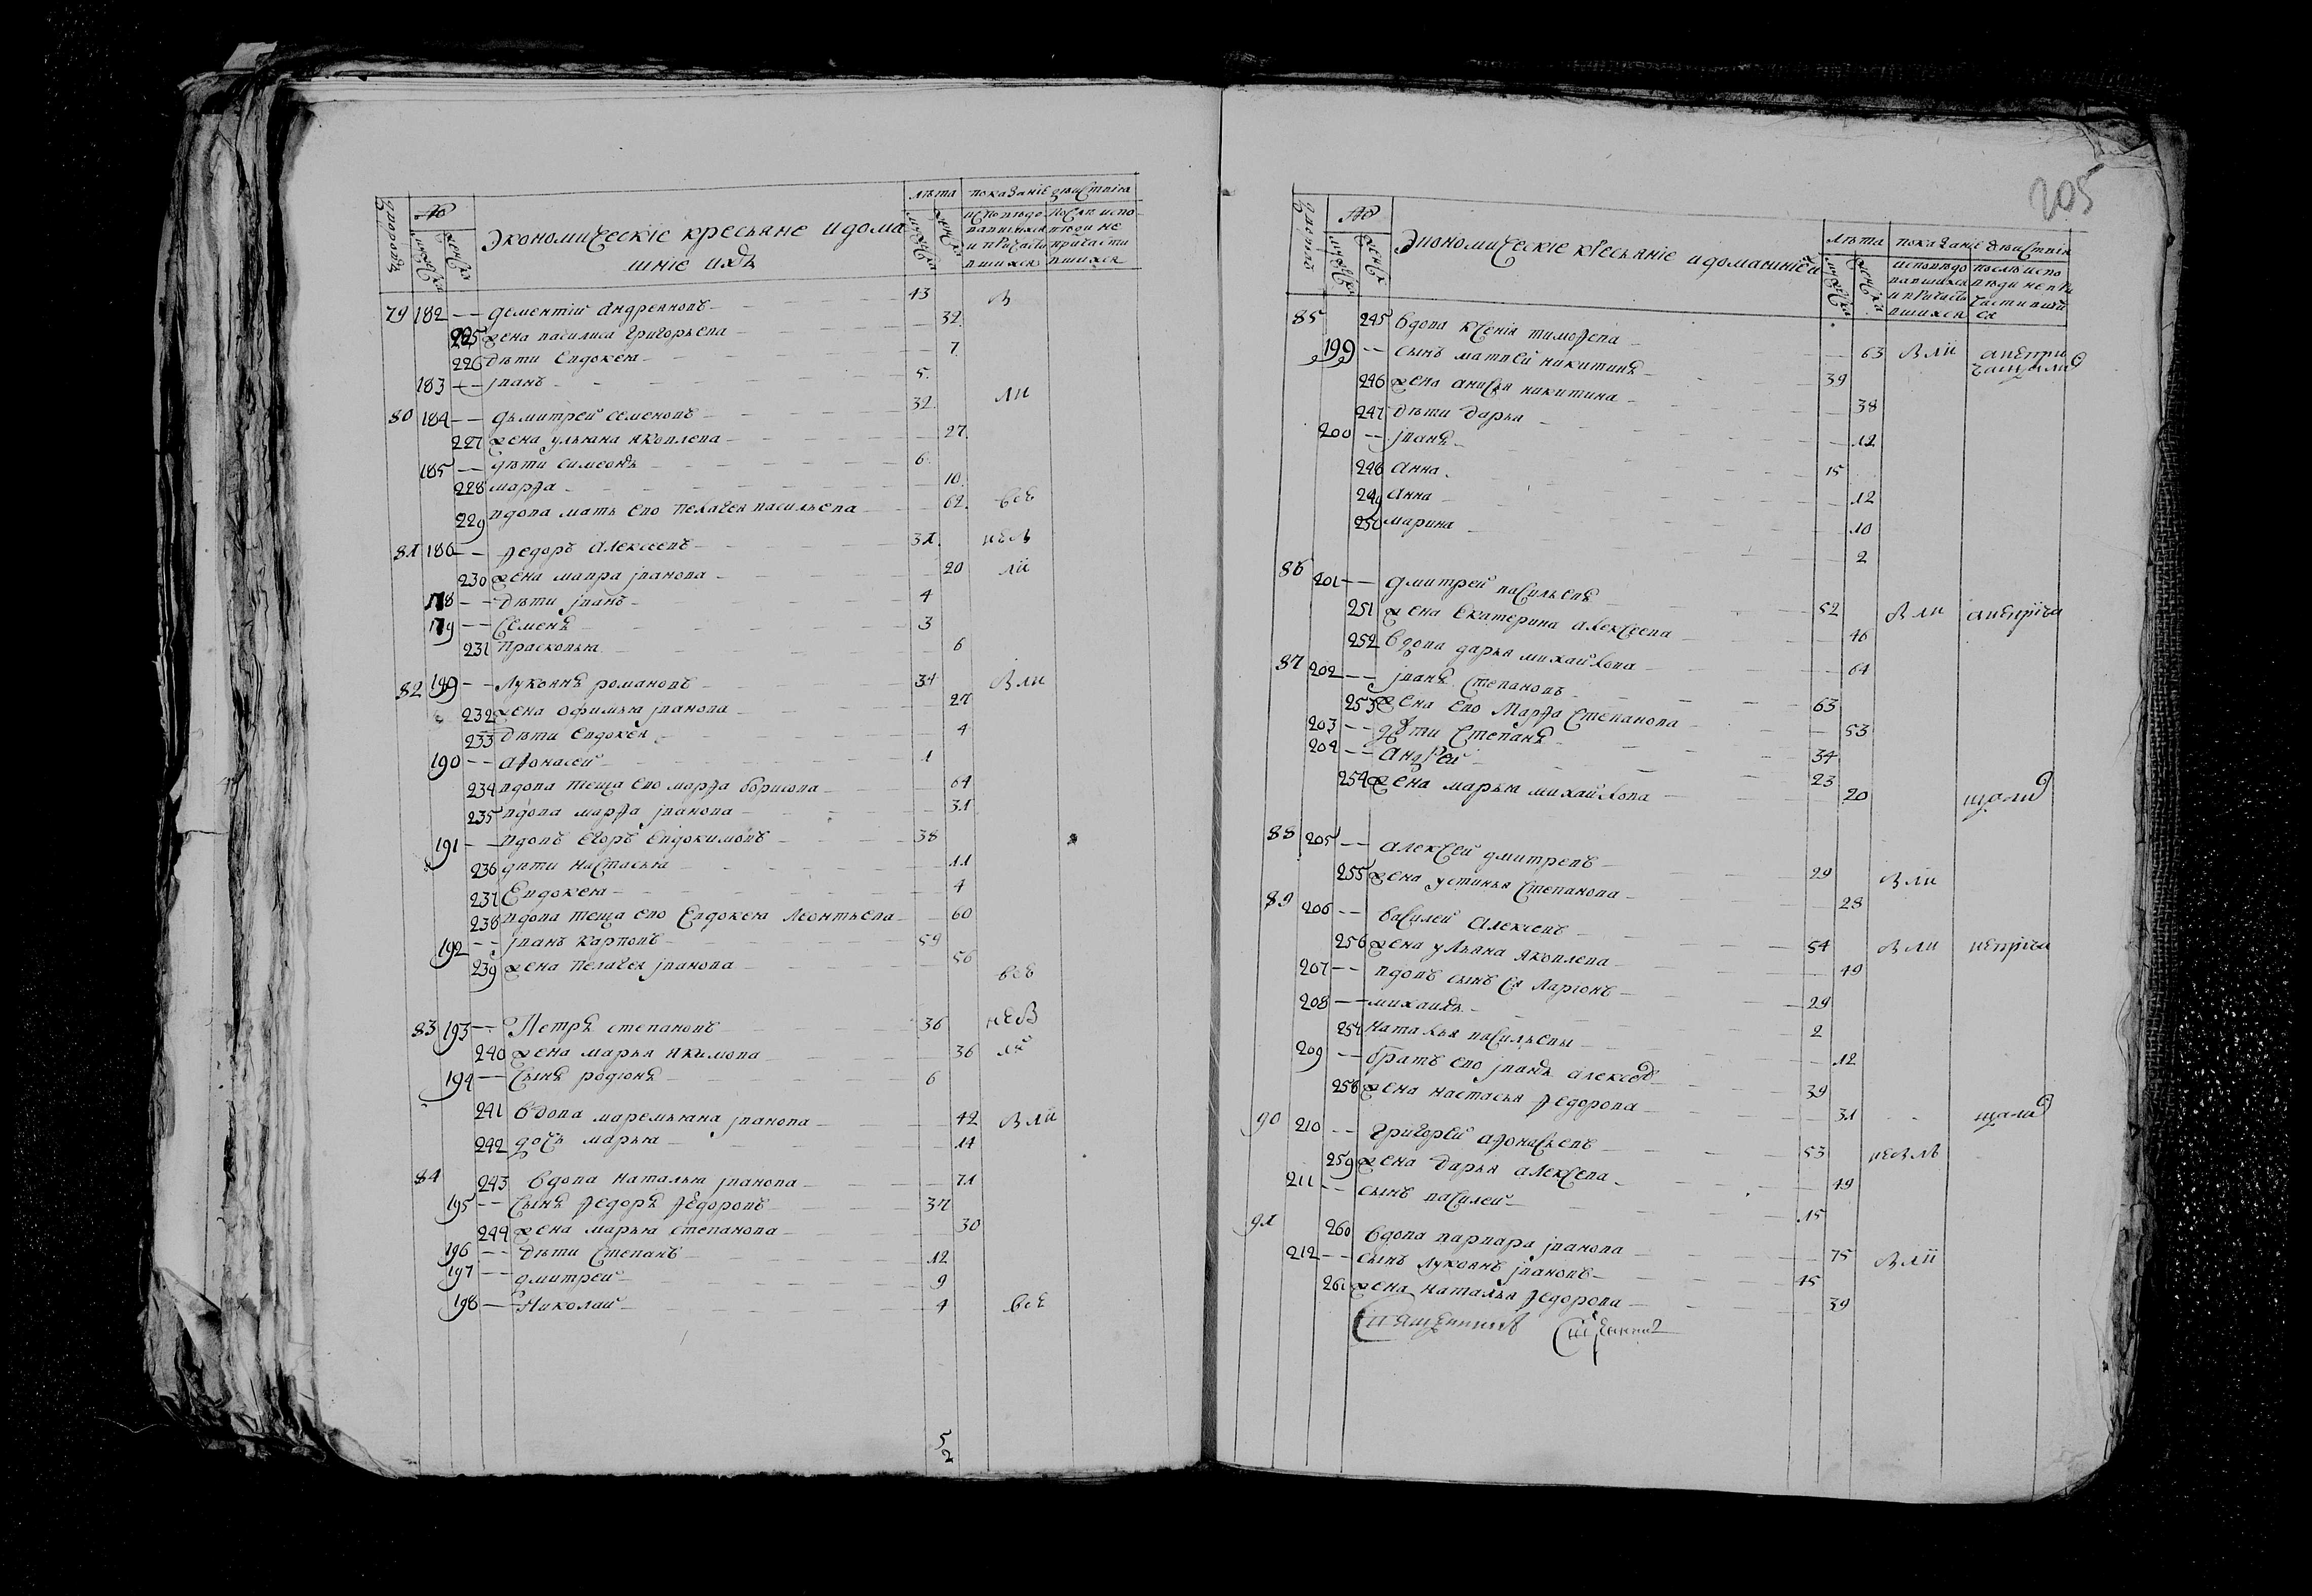 № Экономическіе крестьяне и дома
шніе ихъ
лѣта показаніе дѣиствія
79 182 — Дементій Андреяновъ 43 В
225 жена василиса григорьева 32
226 дѣти Евдокея 7
183 — іванъ 5
80 184 — Дьмитрей семеновъ 32 ли
227 жена ульяна яковлева 27
185 — дѣти симеонъ 6
228 марѳа 10
229 вдова мать его пелагея васильева 62 всѣ
81 186 — ѳедоръ алексеевъ 31
230 жена мавра іванова 20 ли
178 — дѣти іванъ 4
179 — Семенъ 3
231 Прасковья 6
82 189 — Лукоянъ романовъ 34 В ли
232 жена офимья іванова 27
233 дѣти евдокея 4
190 — аѳонасей 1
234 вдова теща его марѳа борисова 64
235 вдова марѳа іванова 31
191 — вдовъ егоръ евдокимовъ 38
236 дѣти настасья 11
237 Евдокея 4
238 вдова теща его Евдокея леонтьева 60
192 — іванъ карповъ 59
239 жена пелагея іванова 56 всѣ
83 193 — Петръ степановъ 36
240 жена марья якимова 36
194 — Сынъ родіонъ 6
241 вдова маремьяна іванова 42 В ли
242 дочь марья 14
84 243 вдова наталья іванова 71
195 — Сынъ ѳедоръ ѳедоровъ 37
244 жена марья степанова 30
196 — дѣти Степанъ 12
197 — дмитрей 9
198 — Николай 4 всѣ
52
205
№ Экономическіе крестьяніе и домашніе
лѣта показаніе дѣиствія
85 245 вдова ксенія тимоѳева 63 В ли
199 — сынъ матвей никитинъ 39
246 жена анисья никитина 38
247 дѣти дарья 12
200 — іванъ 15
248 анна 12
249 анна 10
250 марина 2
86 201 — дмитрей васильевъ 52 В ли
251 жена екатерина алексеева 46
252 вдова дарья михайлова 64
87 202 — іванъ степановъ 63
253 жена его Марѳа степанова 53
203 — дѣти Степанъ 34
204 — андрей 23
254 жена марья михайлова 20
88 205 — алексей дмитревъ 29 В ли
255 жена устинья степанова 28
89 206 — василей алексеевъ 54 В ли непріча
256 жена ульяна яковлева 49
207 — вдовъ сынъ ея Ларіонъ 29
208 — михаилъ 2
257 наталья васильевы 12
209 — братъ его іванъ алексеевъ 39
258 жена настасья ѳедорова 31
90 210 — григорей аѳонасьевъ 53
259 жена дарья алексеева 49
211 — сынъ василей 15
91 260 вдова варвара іванова 75 В ли
212 — сынъ лукоянъ івановъ 45
261 жена наталья ѳедорова 39